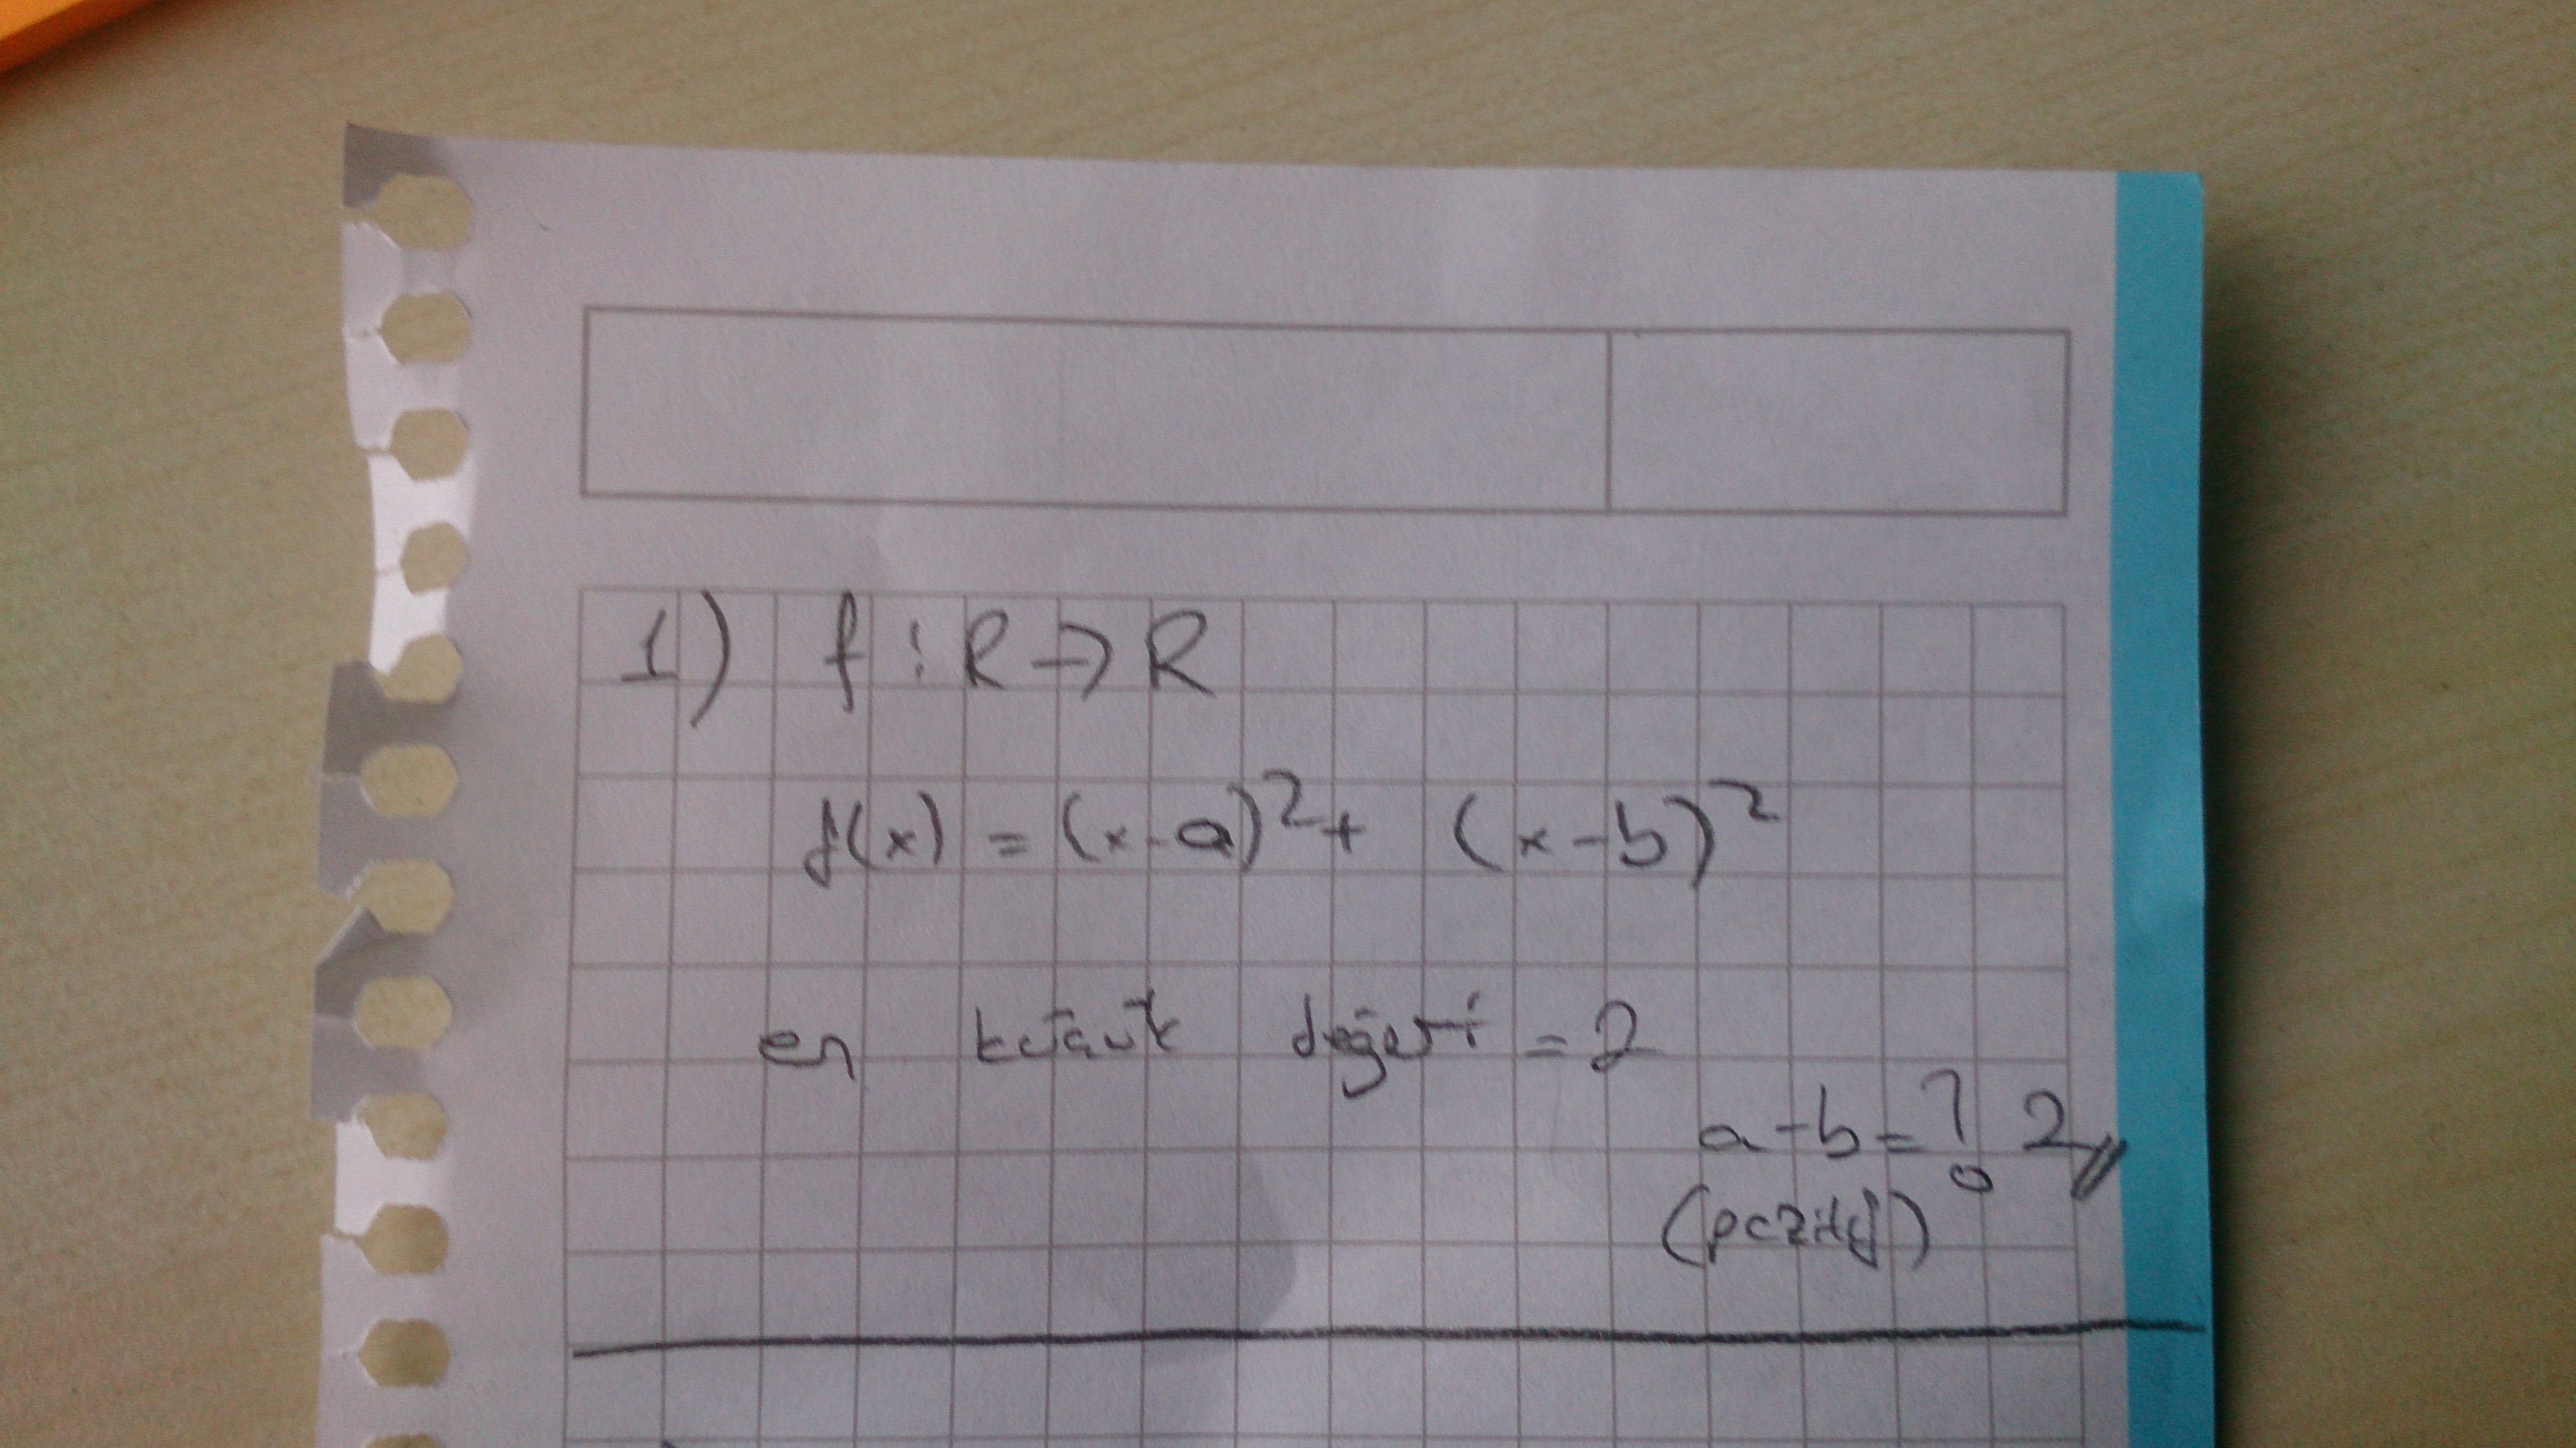 1) f : R → R
f(x) = (x-a)² + (x-b)²
en küçük değeri = 2
a-b = ? 2
(pozitif)